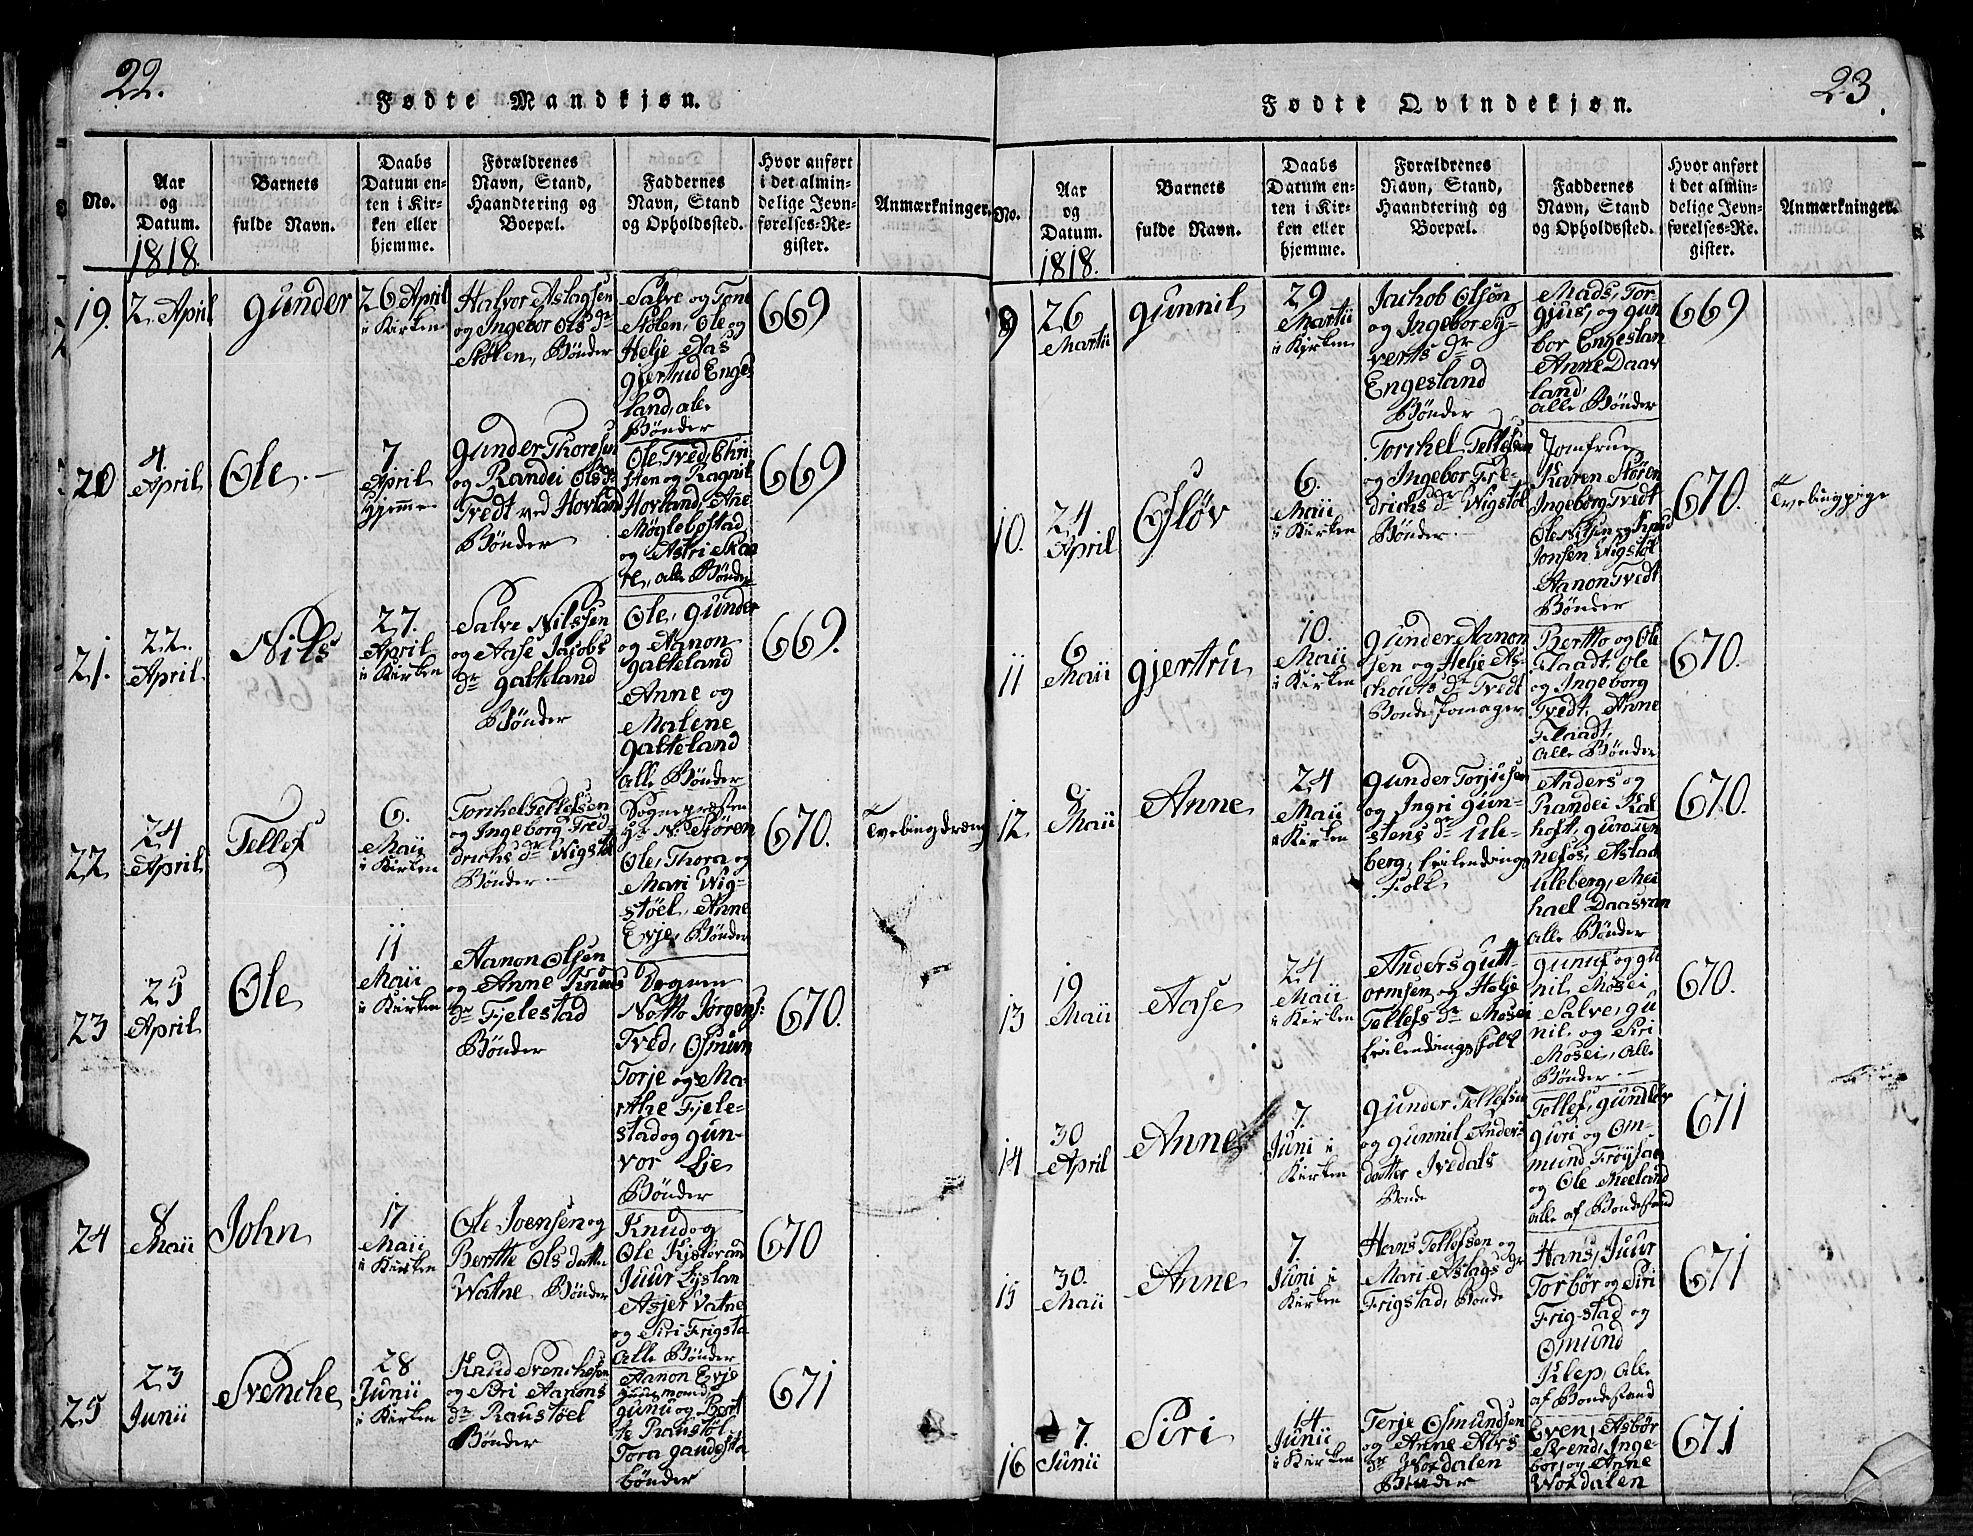 22.
Fødte Mandkjøn.
No.
Aar
og
Datum.
1818.
Barnets
fulde Navn.
Daabs
Datum en-
ten i Kir-
ken eller
hjemme.
Forældrenes
Navn, Stand,
Haandtering og
Boepæl.
Faddernes
Navn, Stand
og Opholdssted.
Hvor anført
i det almin-
delige Jevn-
førelses-Re-
gister.
Anmærkninger.
19.
2 April
Gunder
26 April
i Kirken
Halvor Aslagsen
og Ingebor Ols dr
Stølen, Bønder
Salve og Tone
Stølen, Ole og
Helje Aas
Gjertrud Enges
land, alle
Bønder
669
20
4.
April
Ole.
7
April
Hjemme
Gunder Thoresen
og Randei Ols dr
Tvedt ved Hovland
Bønder
Ole Tved, Chri
sten og Ragnil
Hovland, Ane
Møglebøstad
og Astri Skaa
re, alle Bønder
669
21.
22.
April
Nils
27.
April
i Kirken
Salve Nilssen
og Aase Jacobs
dr Gabteland
Bønder
Ole, Gunder
og Aanon
Gabteland
Anne og
Malene
Gabteland
alle Bønder
669.
22
24
April
Tellef
6.
Maii
i Kirken
Torchel Tellefsen
og Ingeborg Fred
drichs dr Wigstøl
Bønder
Sognepresten
Hr N. Støren
Ole, Thora og
Mari Wig-
støel, Anne
Evje, Bønder
670.
Tvebingdreng
23
25
April
Ole
11
Maii
i Kirken
Aanon Olsen
og Anne Knuds
dr Fjelestad
Bønder
Notto Jørgens:
Tved, Osmun
Torje og Ma-
rthe Fjele-
stad og Gun-
vor Lie
Bønder
670.
24
8
Maii
John
17
Maii
i Kirken
Ole Joensen og
Berthe Ols datter
Watne Bønder
Knud og
Ole Kjsterand
Juur Lislan
Asjer Vatne
og Siri Frigsta
alle Bønder
670
25
23
Junii
Svenche
28
Junii
i Kirken
Knud Svenchesen
og Siri Aanons
dr Raustøel
Bønder
Aanon Evje
Gunu og Bert
te Raustøl
Tora Gaudesta
bønder
671
23.
Fødte Qvindekjøn.
No.
Aar
og
Datum.
1818.
Barnets
fulde Navn.
Daabs
Datum en-
ten i Kir-
ken eller
hjemme.
Forældrenes
Navn, Stand,
Haandtering og
Boepæl.
Faddernes
Navn, Stand
og Opholdssted.
Hvor anført
i det almin-
delige Jevn-
førelses-Re-
gister.
Anmærkninger.
9
26
Martii
Gunnil
29
Martii
i Kirken
Jachob Olsen
og Ingebor Sy-
verts dr
Engesland
Bønder
Mads, Tor-
gius, og Gun
bor Engeslan
Anne Daas
land,
alle Bønder
669
10.
24
April
Osløv
6.
Maii
i Kirken
Torchel Tellefsen
og Ingebor Fre-
drichs dr Wigstøl
Bønder
Jomfrue
Karen Støren
Ingeborg Tvedt
Ole Nilsen og Knud
Jonsen Wigstøl
Aanon Tvedt
Bønder
670.
Tvebingpige
11
6
Maii
Gjertru
10.
Maii
i Kirken
Gunder Aanon
sen og Helje As-
chouts dr Tvedt
Bonde
Bertto og Ole
Flaadt, Ole
og Ingeborg
Tvedt, Anne
Flaadt,
alle Bønder
670.
12
8
Maii
Anne
24
Maii
i Kirken
Gunder Torjusen
og Ingri Gun-
stens dr Ule-
berg,
Folk
Anders og
Randei Kal
hoft,
nefos, Aslak
Uleberg, Mei
hael Daasvan
alle Bønder
670.
13
19
Maii
Aase
24
Maii
i Kirken
Anders Gutt
ormsen og Helje
Tellefs dr Mosei
Gunuf og Gu
nil, Mosei,
Salve, Gu
nil, og Siri
Mosei, alle
Bønder
670.
14
30
April
Anne
7.
Juni i
Kirken
Gunder Tellefsen
og Gunnil Anders
datter Ivedals
Bonde
Tellef, Gundbør
Guri og Om-
mund Frøysaa
og Ole Meeland
alle af Bondestand
671
15
30.
Maii
Anne
7.
Juni i
Kirken
Hans Tellefsen og
Mari Aslags dr
Frigstad, Bonde
Hans, Juur
Torbør og Siri
Frigstad og
Omund
Klep, alle
af Bondestand
671
16
7.
Junii
Siri
14
Junii
i Kirken
Terje Osmundsen
og Anne Alvs
dr Wordalen
Bønder
Even, Asbør
Svend, Inge-
bor, og Anne
Wordalen
671